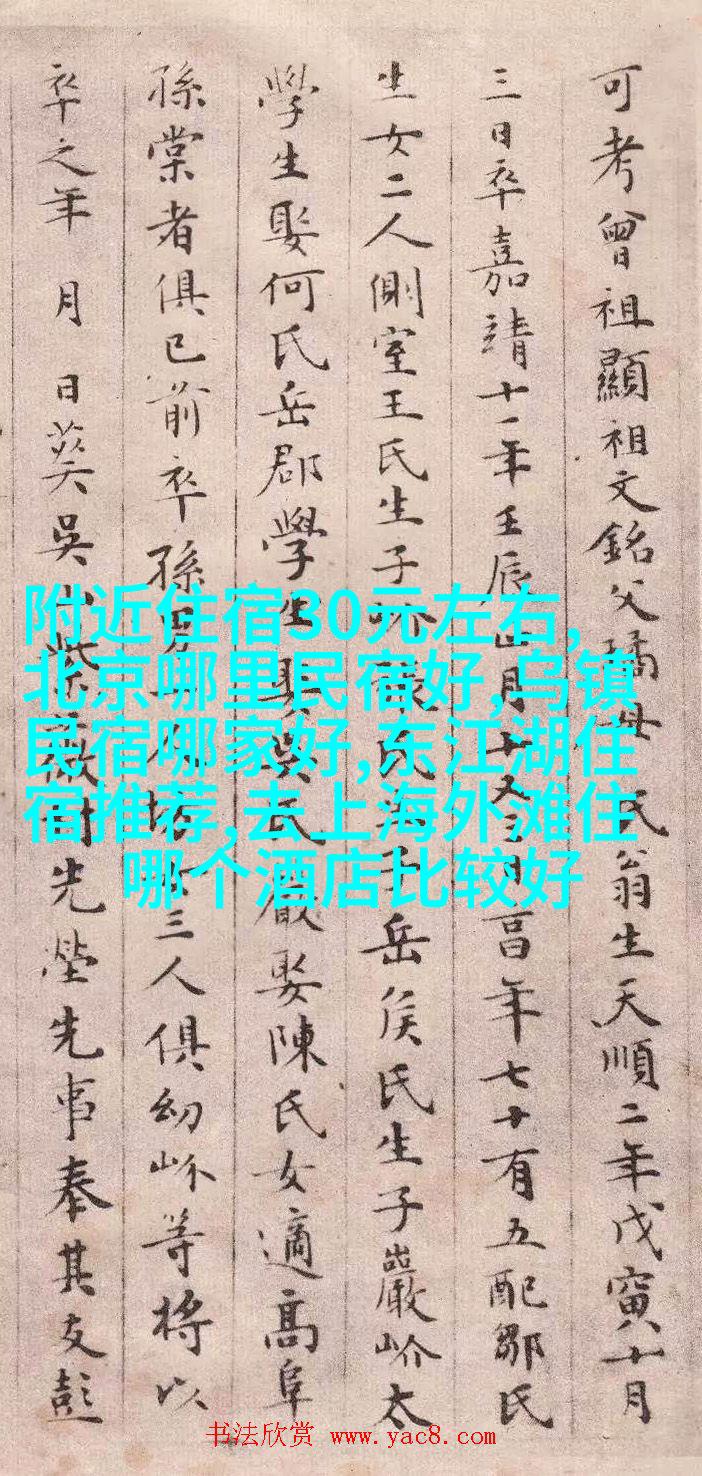 可考曾祖顯祖文銘父璚母 氏翁生天順二年戊寅十月
三日卒嘉靖十一年壬辰 月十 又 日 年七十有五配鄒氏
生女二人側室王氏生子 氏 子岳侯氏生子巖岕太
學生娶何氏岳郡學生娶吳氏 巖娶陳氏女適高阜
孫棠者俱已前卒孫男 三人俱幼岕等將以
卒之年 月 日葬吳山紫薇 先塋先事奉其友彭
附近住宿30元左右,
北京哪里民宿好,乌镇
民宿哪家好,东江湖住
宿推荐,去上海外滩住
哪个酒店比较好
书法欣赏 www.yac8.com